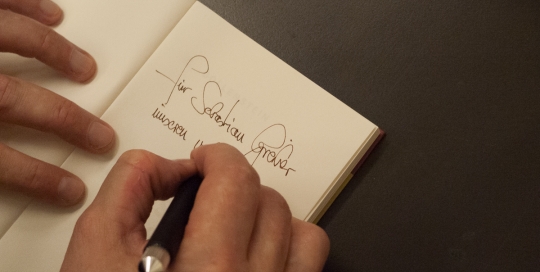 für Sebastian Größer
unseren